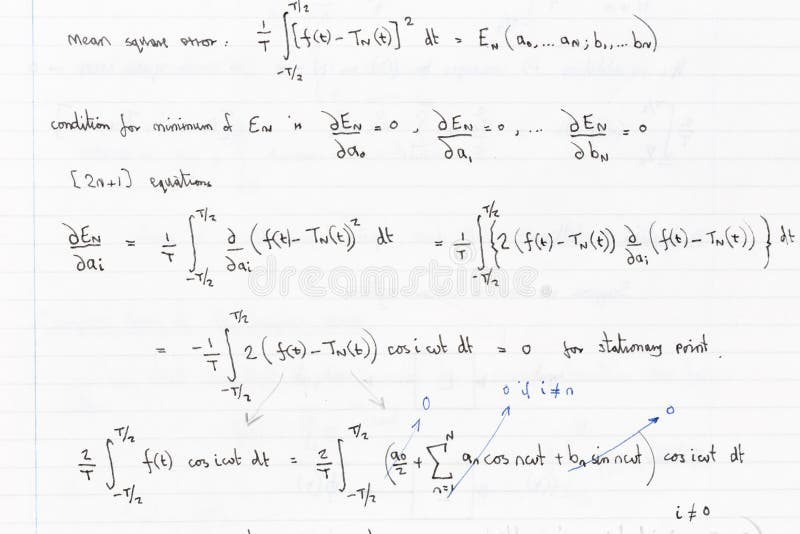 mean square error: 1/T ∫_{-T/2}^{T/2} [f(t) - T_N(t)]² dt = E_N (a₀, ... a_N; b₁, ... b_N)
condition for minimum of E_N is ∂E_N/∂a₀ = 0, ∂E_N/∂a₁ = 0, ... ∂E_N/∂b_N = 0
[2N+1] equations
∂E_N/∂aᵢ = 1/T ∫_{-T/2}^{T/2} ∂/∂aᵢ (f(t) - T_N(t))² dt = 1/T ∫_{-T/2}^{T/2} {2 (f(t) - T_N(t)) ∂/∂aᵢ (f(t) - T_N(t))} dt
dreamstime
= -1/T ∫_{-T/2}^{T/2} 2 (f(t) - T_N(t)) cos iωt dt = 0 for stationary point.
0 0 if i≠n 0
2/T ∫_{-T/2}^{T/2} f(t) cos iωt dt = 2/T ∫_{-T/2}^{T/2} (a₀/2 + Σ_{n=1}^{N} aₙ cos nωt + bₙ sin nωt) cos iωt dt
i≠0